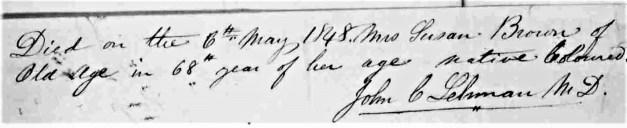 Died on the 6th May 1848. Mrs Susan Brown of
Old Age in 68th year of her age native Coloured.
John C Lehman M D.